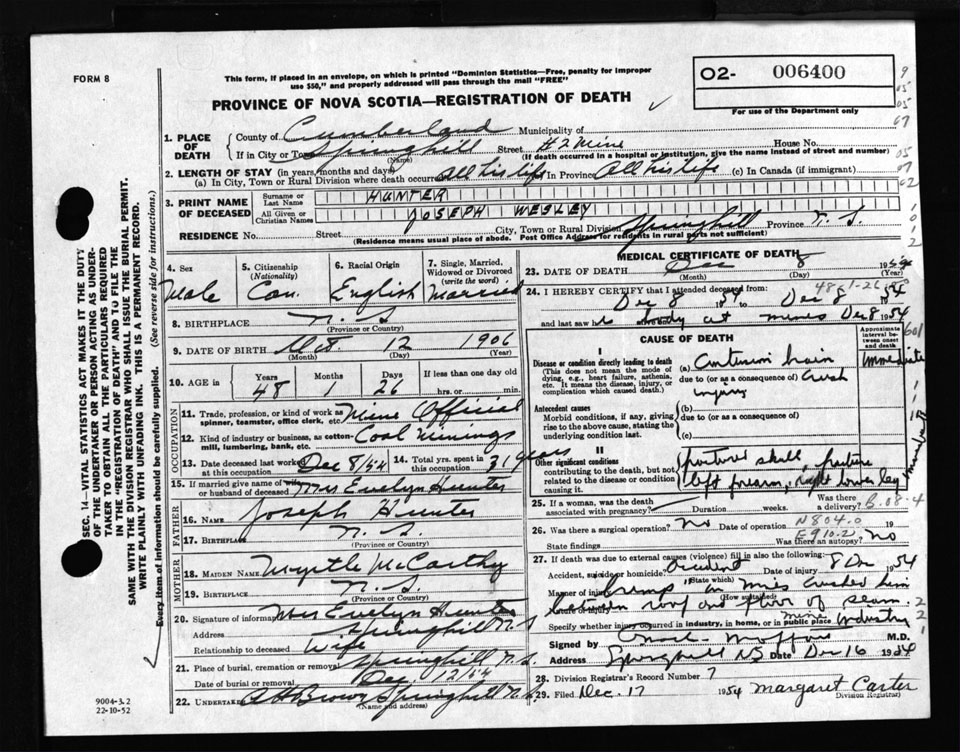 FORM 8
This form, if placed in an envelope, on which is printed "Dominion Statistics—Free, penalty for improper
use $50," and properly addressed will pass through the mail "FREE"
PROVINCE OF NOVA SCOTIA—REGISTRATION OF DEATH
02- 006400
For use of the Department only
1. PLACE OF DEATH
County of Cumberland Municipality of
If in City or Town Springhill Street #2 Mine House No.
(Name) (If death occurred in a hospital or institution, give the name instead of street and number)
2. LENGTH OF STAY (in years, months and days)
(a) In City, Town or Rural Division where death occurred All his life In Province All his life (c) In Canada (if immigrant)
3. PRINT NAME OF DECEASED
Surname or Last Name HUNTER
All Given or Christian Names JOSEPH WESLEY
RESIDENCE No. Street City, Town or Rural Division Springhill Province N. S.
(Residence means usual place of abode. Post Office Address for residents in rural parts not sufficient)
4. Sex Male
5. Citizenship (Nationality) Can.
6. Racial Origin English
7. Single, Married, Widowed or Divorced (write the word) Married
8. BIRTHPLACE N. S.
(Province or Country)
9. DATE OF BIRTH Oct. 12 1906
(Month) (Day) (Year)
10. AGE in Years 48 Months 1 Days 26 If less than one day old
hrs. or min.
OCCUPATION
11. Trade, profession, or kind of work as spinner, teamster, office clerk, etc. Mine Official
12. Kind of industry or business, as cotton-mill, lumbering, bank, etc. Coal Minings
13. Date deceased last worked at this occupation Dec 8/54
14. Total yrs. spent in this occupation 31 years
15. If married give name of wife or husband of deceased Mrs Evelyn Hunter
FATHER
16. NAME Joseph Hunter
17. BIRTHPLACE N. S.
(Province or Country)
MOTHER
18. MAIDEN NAME Myrtle McCarthy
19. BIRTHPLACE N. S.
(Province or Country)
20. Signature of informant Mrs Evelyn Hunter
Address Springhill N S
Relationship to deceased Wife
21. Place of burial, cremation or removal Springhill N. S.
Date of burial or removal Dec. 12/54
22. UNDERTAKER A H Brown Springhill N. S.
(Name and address)
MEDICAL CERTIFICATE OF DEATH
23. DATE OF DEATH Dec 8 1954
(Month) (Day) (Year)
24. I HEREBY CERTIFY that I attended deceased from:
Dec 8 1954 to Dec 8 1954
and last saw body at mines Dec 8 1954
CAUSE OF DEATH
Approximate interval between onset and death
I
Disease or condition directly leading to death
(This does not mean the mode of dying, e.g., heart failure, asthenia, etc. It means the disease, injury, or complication which caused death.)
(a) immediate
due to (or as a consequence of) Crush injury
Antecedent causes
Morbid conditions, if any, giving rise to the above cause, stating the underlying condition last.
(b)
due to (or as a consequence of)
(c)
II
Other significant conditions
contributing to the death, but not related to the disease or condition causing it.
fractured skull, fracture
left forearm, right lower leg
25. If a woman, was the death associated with pregnancy? Duration weeks. Was there a delivery?
26. Was there a surgical operation? No Date of operation 19
N804.0
E910.2
State findings Was there an autopsy? No
27. If death was due to external causes (violence) fill in also the following:
Accident, suicide or homicide. Accident Date of injury 8 Dec 1954
(State which)
Manner of injury Bump in mines crushed him
(How sustained)
between roof and floor of seam.
Specify whether injury occurred in industry, in home, or in public place mine Industry
Signed by M.D.
Address Springhill NS Date Dec 16 1954
28. Division Registrar's Record Number 7
29. Filed Dec. 17 1954 Margaret Carter
(Division Registrar)
SEC. 14—VITAL STATISTICS ACT MAKES IT THE DUTY
OF THE UNDERTAKER OR PERSON ACTING AS UNDER-
TAKER TO OBTAIN ALL THE PARTICULARS REQUIRED
IN THE "REGISTRATION OF DEATH" AND TO FILE THE
SAME WITH THE DIVISION REGISTRAR WHO SHALL ISSUE THE BURIAL PERMIT.
WRITE PLAINLY WITH UNFADING INK. THIS IS A PERMANENT RECORD.
Every item of information should be carefully supplied. (See reverse side for instructions.)
9004-3.2
22-10-52